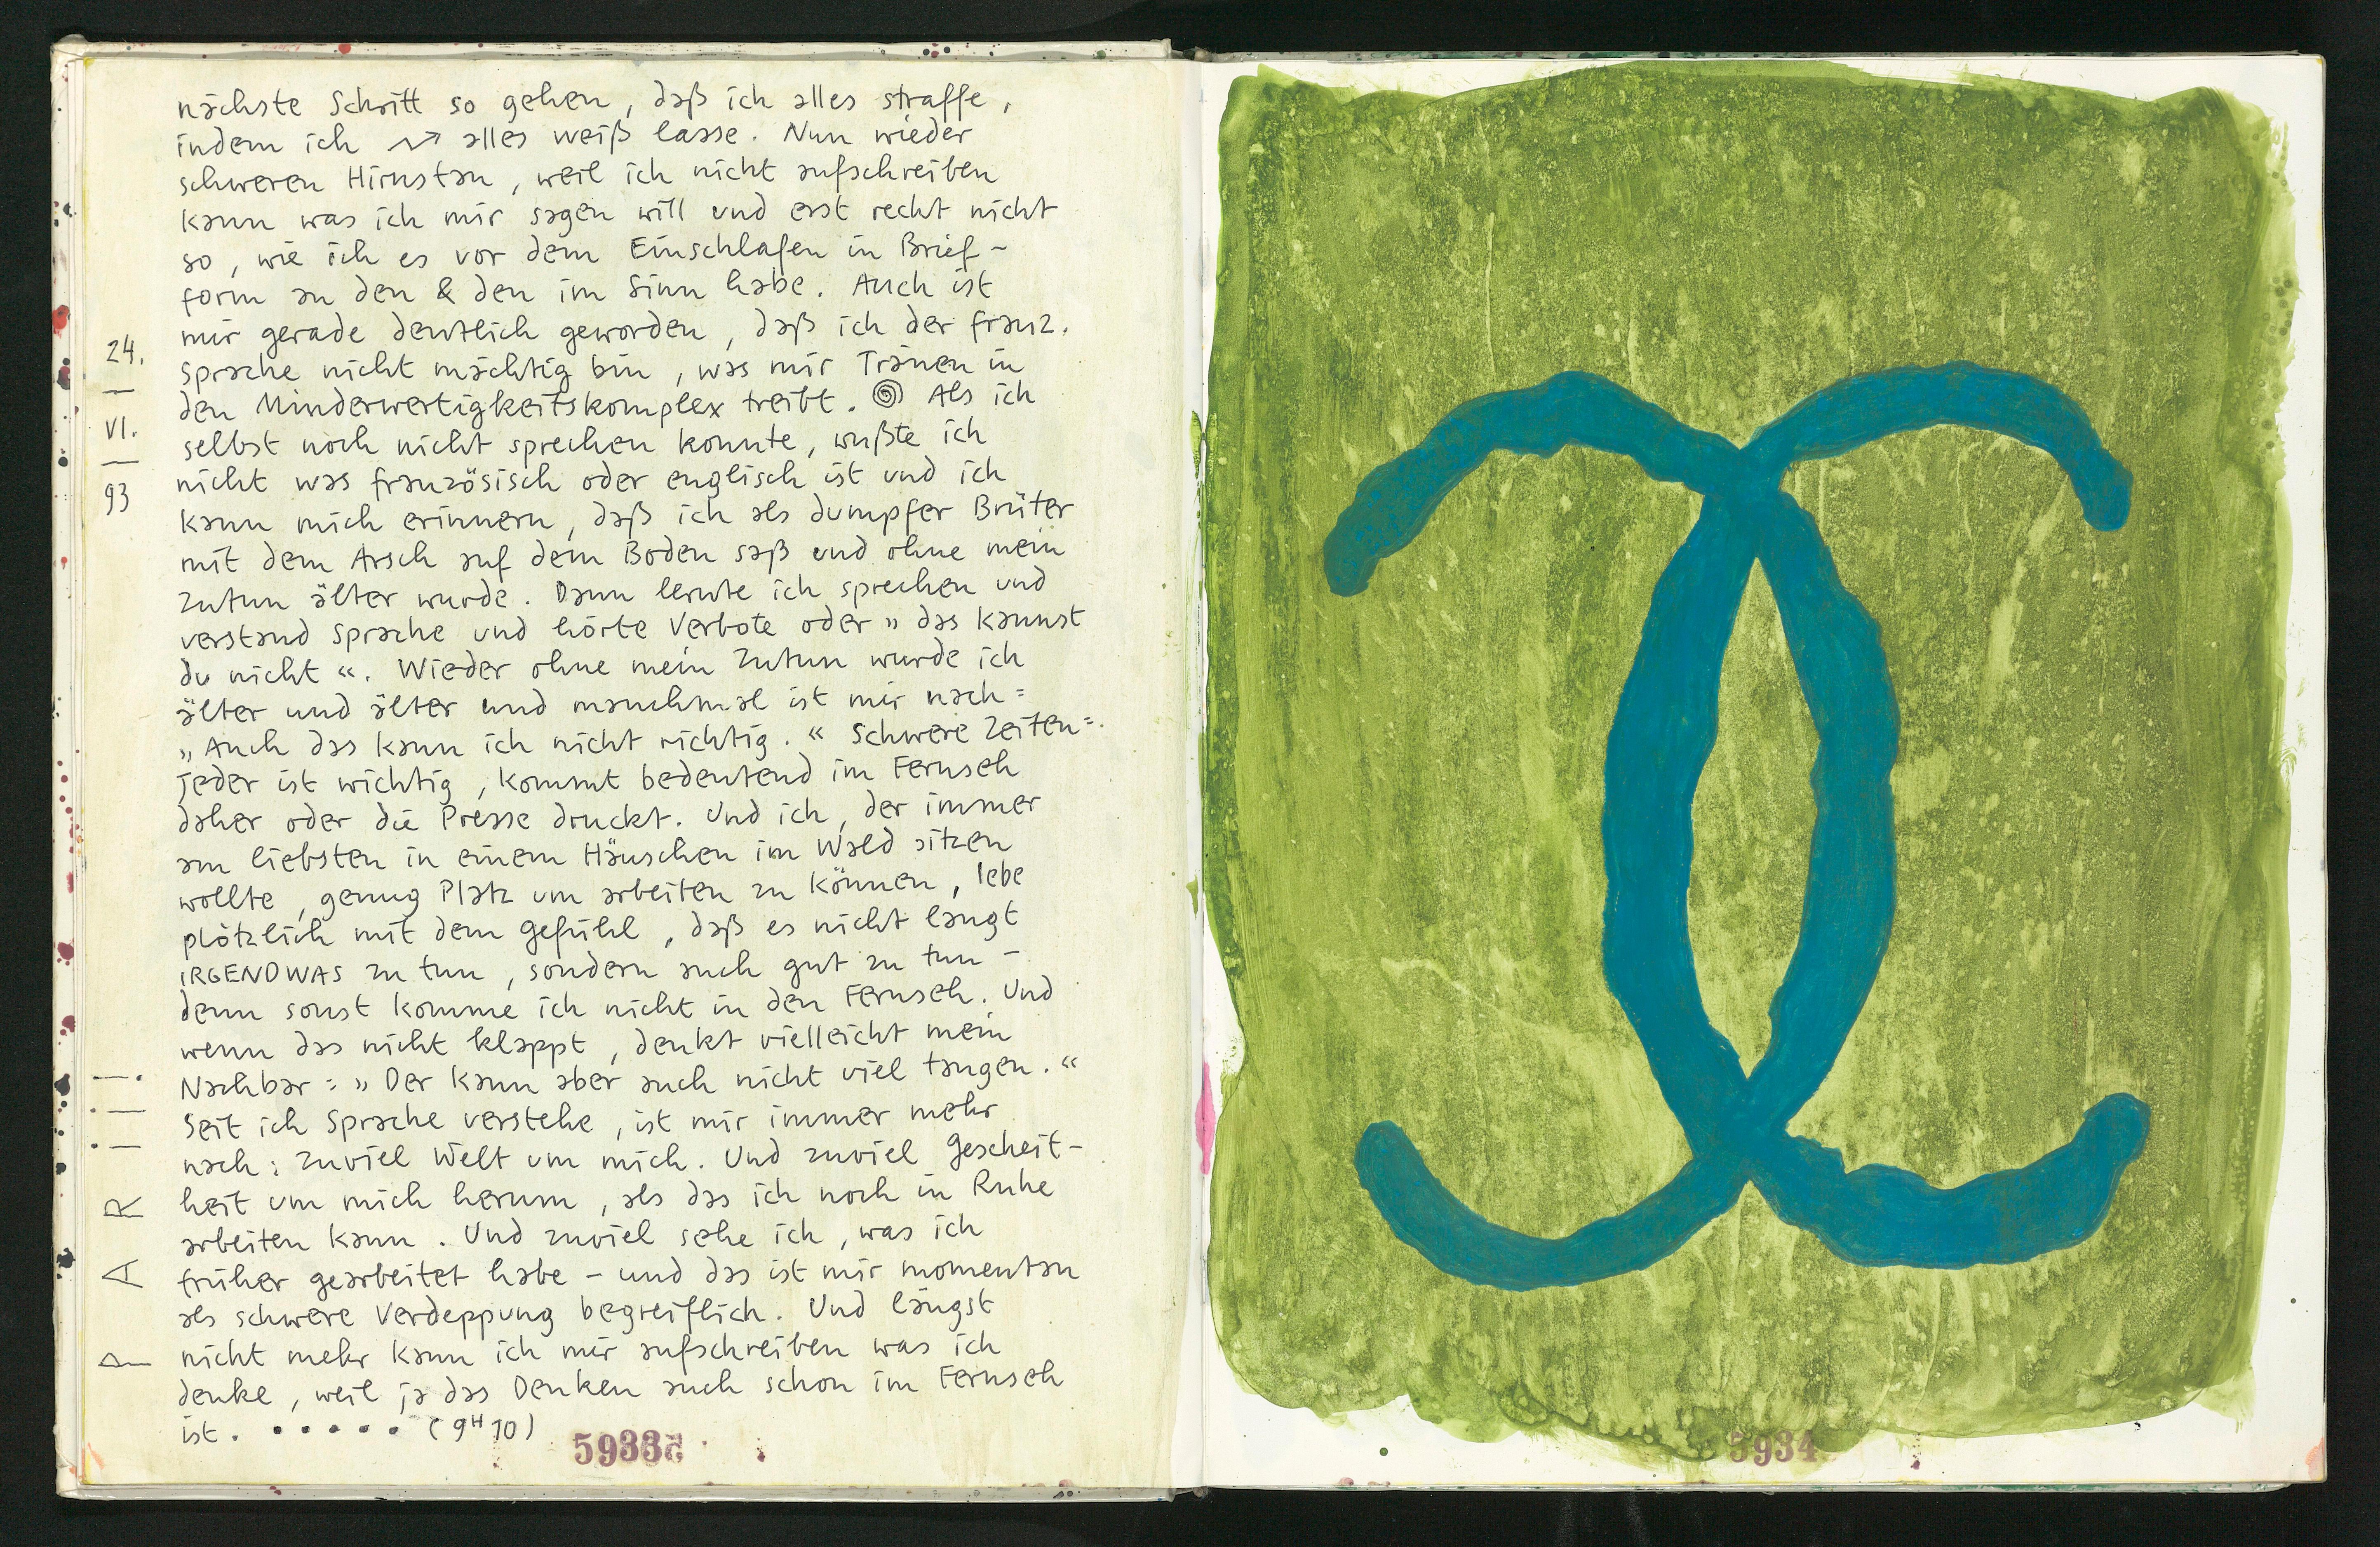 nächste Schritt so gehen, daß ich alles straffe,
indem ich alles weiß lasse. Nun wieder
schweren Hirnstau, weil ich nicht aufschreiben
kann was ich mir sagen will und erst recht nicht
so, wie ich es vor dem Einschlafen in Brief-
form an den & den im Sinn habe. Auch ist
mir gerade deutlich geworden, daß ich der franz.
Sprache nicht mächtig bin, was mir Tränen in
den Minderwertigkeitskomplex treibt. Als ich
selbst noch nicht sprechen konnte, wußte ich
nicht was französisch oder englisch ist und ich
kann mich erinnern, daß ich als dumpfer Brüter
mit dem Arsch auf dem Boden saß und ohne mein
Zutun älter wurde. Dann lernte ich sprechen und
verstand Sprache und hörte Verbote oder „das kannst
du nicht“. Wieder ohne mein Zutun wurde ich
älter und älter und manchmal ist mir nach =
„Auch das kann ich nicht richtig.“ Schwere Zeiten =.
jeder ist wichtig, kommt bedeutend im Fernseh
daher oder die Presse druckt. Und ich, der immer
am liebsten in einem Häuschen im Wald sitzen
wollte, genug Platz um arbeiten zu können, lebe
plötzlich mit dem Gefühl, daß es nicht langt
IRGENDWAS zu tun, sondern auch gut zu tun -
denn sonst komme ich nicht in den Fernseh. Und
wenn das nicht klappt, denkt vielleicht mein
Nachbar: „Der kann aber auch nicht viel taugen.“
Seit ich Sprache verstehe, ist mir immer mehr
nach: zuviel Welt um mich. Und zuviel Gescheit-
heit um mich herum, als das ich noch in Ruhe
arbeiten kann. Und zuviel sehe ich, was ich
früher gearbeitet habe - und das ist mir momentan
als schwere Verdeppung begreiflich. Und längst
nicht mehr kann ich mir aufschreiben was ich
denke, weil ja das Denken auch schon im Fernseh
ist. . . . . . (9H10)
24.
VI.
93
PARI!!!
59335
5934